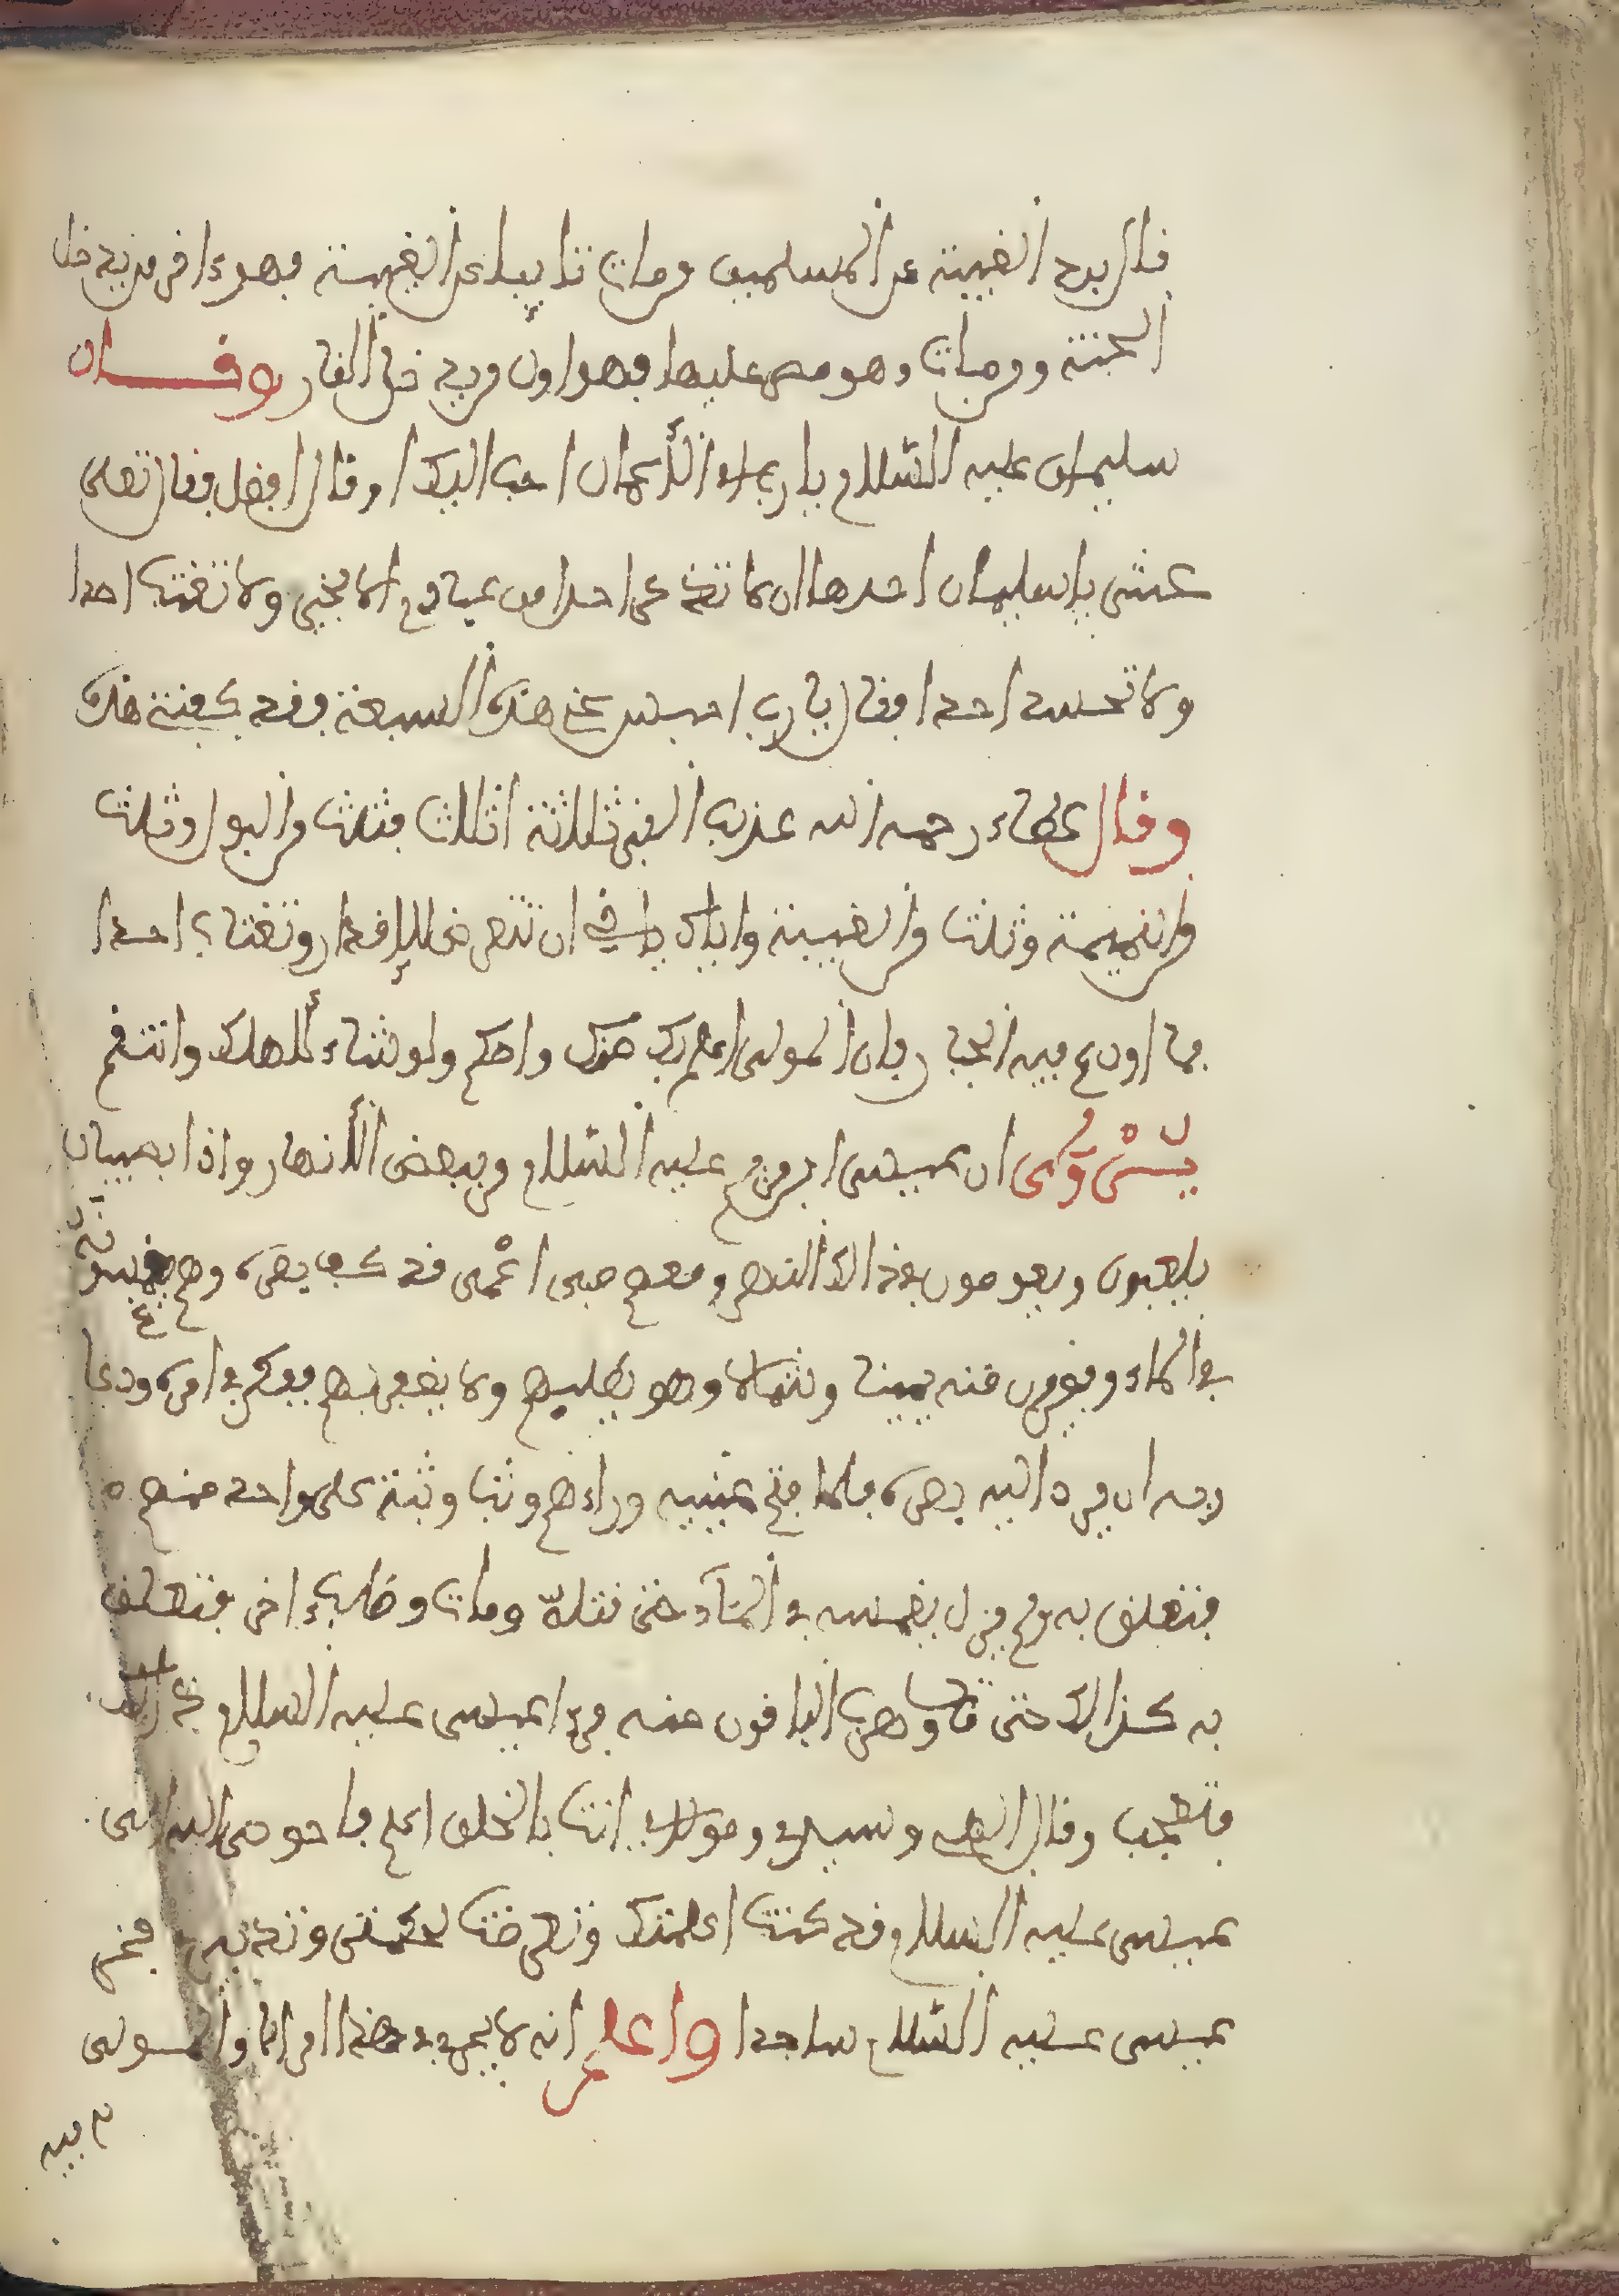 قال بدح الغيبة عن المسلمين ومات تايبا عن الغيبة فهو ءاخر من يدخل
الجنة ومن مات وهو مصر عليها فهو اول من يدخل النار وقــال
سليمان عليه السلام يا رب اي الأعمال احب اليك او قال افضل فقال تعلى
عشر يا سليمان احدها ان لا تذكر احدا من عبادي الا بخير ولا تغتب احدا
ولا تحسد احدا فقال يا رب احبس عني هذه السبعة فقد كفتني هذه
وقال عطاء رحمه الله عذاب القبر ثلاثة اثلاث فثلث من البول وثلث
من النميمة وثلث من الغيبة واياك يا اخي ان تتعرض للاقدار وتغتاب احدا
بما اودع فيه الجبار فان المولى اعلم بك منك واحكم ولو شاء لأهلك وانتقم
يُــرْوَى ان عيسى ابن مريم عليه السلام مر ببعض الأنهار واذا بصبيان
يلعبون ويعومون في ذالك النهر ومعهم صبي اعْمى قد كف بصره وهم يغمسونه
في الماء ويفرون منه يمينا وشمالا وهو يطلبهم ولا يظفر بهم ففكر في امره ودعا
ربه ان يرد اليه بصره فلما فتح عينيه وراءهم وثب وثبة على واحد منهم
فتعلق به ولم يزل يغمسه في الماء حتى قتله ومات وطلب ءاخر فتعلق
به كذالك حتى مات وهرب الباقون منه فرءا عيسى عليه السلام ذالك
فتعجب وقال الهي وسيدي ومولاي انت بالخلق اعلم فاوحى الله الى
عيسى عليه السلام قد كنت اعلمتك وتعرضت لحكمتي وتدبيري فخر
عيسى عليه السلام ساجدا واعلم انه لا يجري في هذا امر الا والمولى
فيه